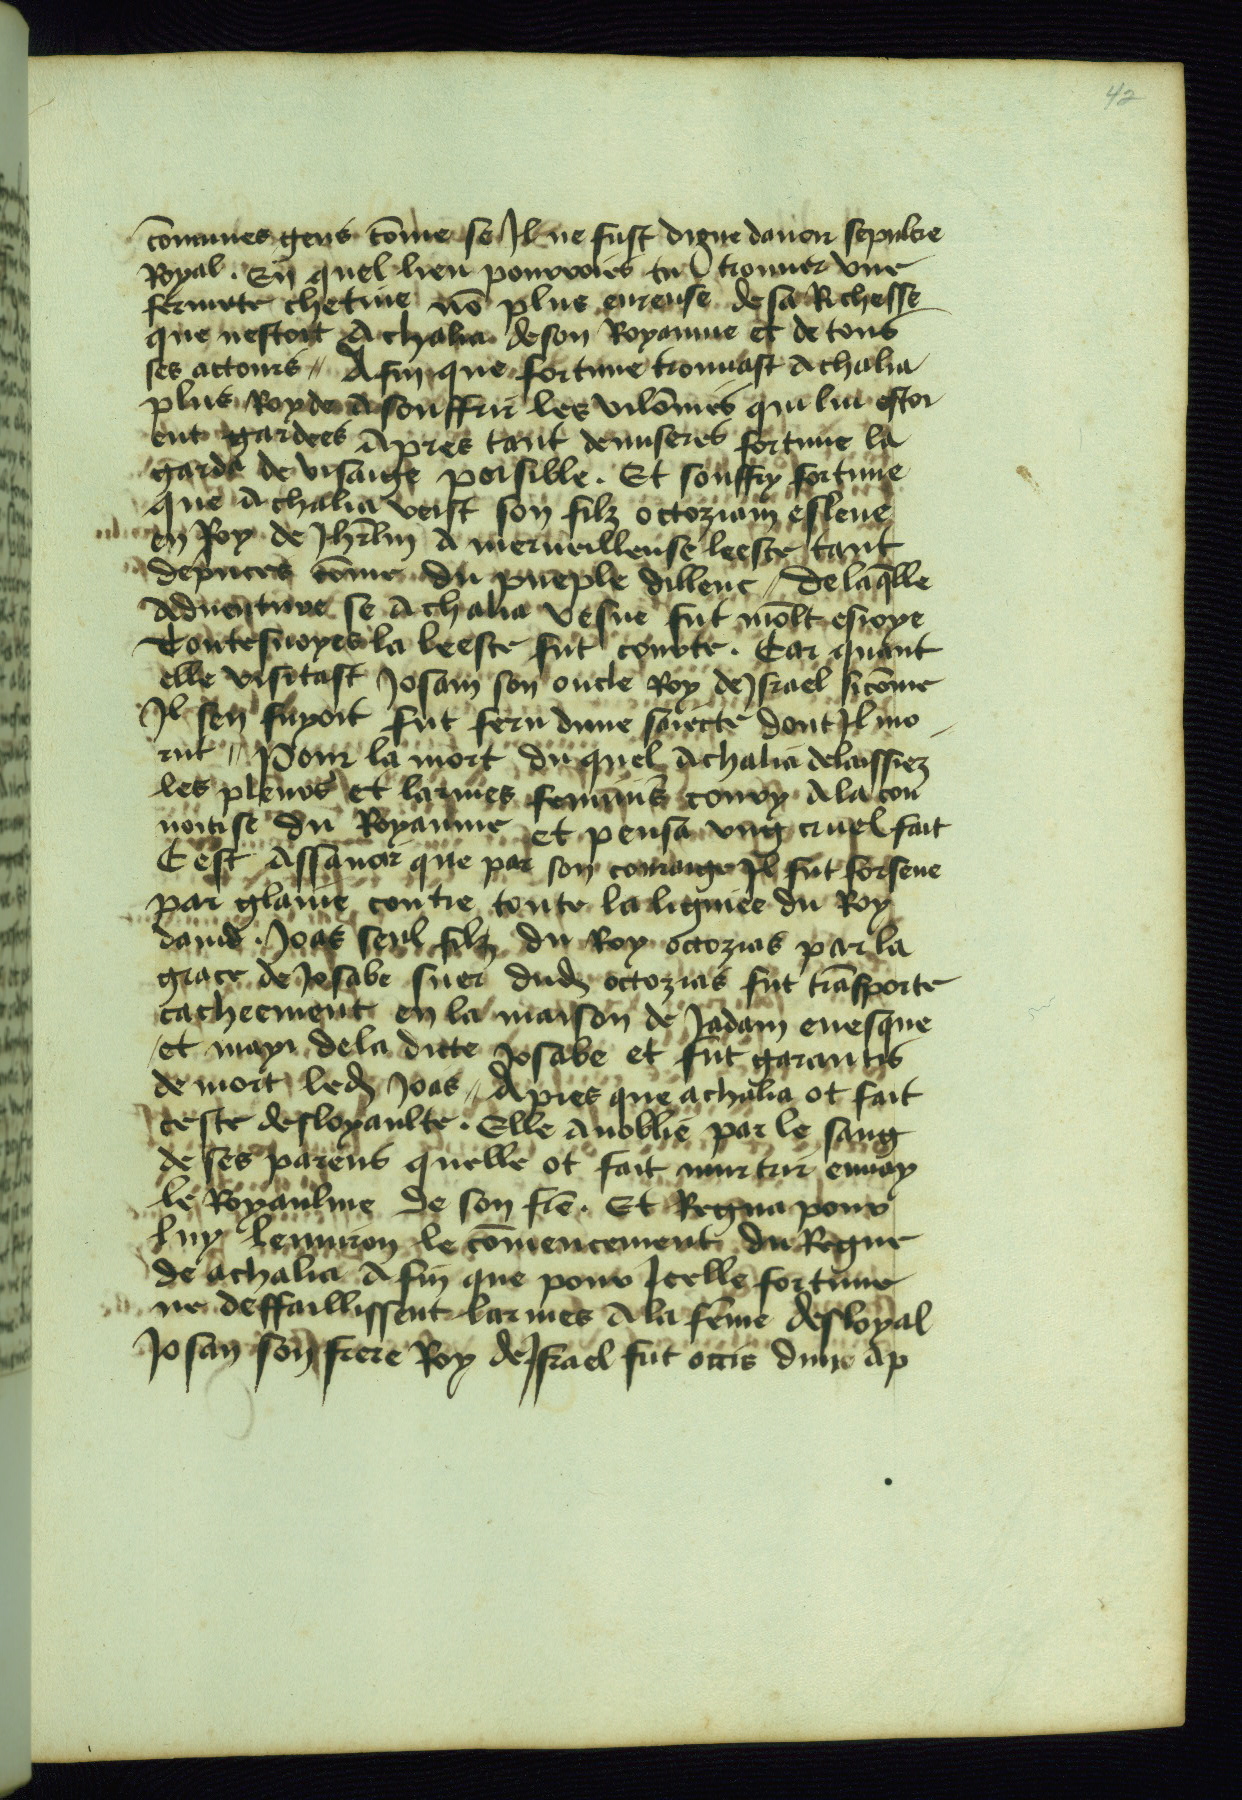 42
cõmunes gens cõme se Il ne fust digne davoir sepulcre
Royal . En quel lieu pourroies tu trouver vne
femmete chetiue nõ plus eureuse de sa Richesse
que nestoit Achalia de son Royaume et de tous
ses attours // Afin que fortune trouuast Achalia
plus Royde A souffrir les vilõnies qui lui estoi
ent gardees Apres tant de miseres fortune la
garda de visaige paisille . Et souffry fortune
que Achalia veist son filz octoziam esleue
en Roy de Jhrl̃m A merueilleuse leesce tant
de princes cõme du pueple dillenc // De laq̃lle
Aduenture se Achalia vesue fut mõlt esioye
Toutesuoyes la leesce fut courte . Car quant
elle visitast Josam son oncle Roy de Israel sicõme
Il sen fuyoit fut feru dune saiecte dont Il mo
rut // Pour la mort du quel Achalia delaissiez
les pleurs et larmes feminins couru A la con
uoitise du Royaume et pensa vng cruel fait
Cest Assauoir que par son couraige Il fut forsene
par glaiue contre toute la ligniee du Roy
dauid . Joas seul filz du Roy octozias par la
grace de Josabe suer dud̃ octozias fut trãsporte
cacheement en la maison de Jadam euesque
et mary de la dicte Josabe et fut garantis
de mort led̃ Joas // Apres que achalia ot fait
ceste desloyaulte . Elle Anoblie par le sang
de ses parens quelle ot fait murtrir enuay
le Royaulme de son fiẽ . Et Regna pour
luy lenuiron le cõmencement du Regne
de achalia Afin que pour Icelle fortune
ne deffaillissent larmes A la fẽme desloyal
Josan son frere Roy de Israel fut occis dune Ap